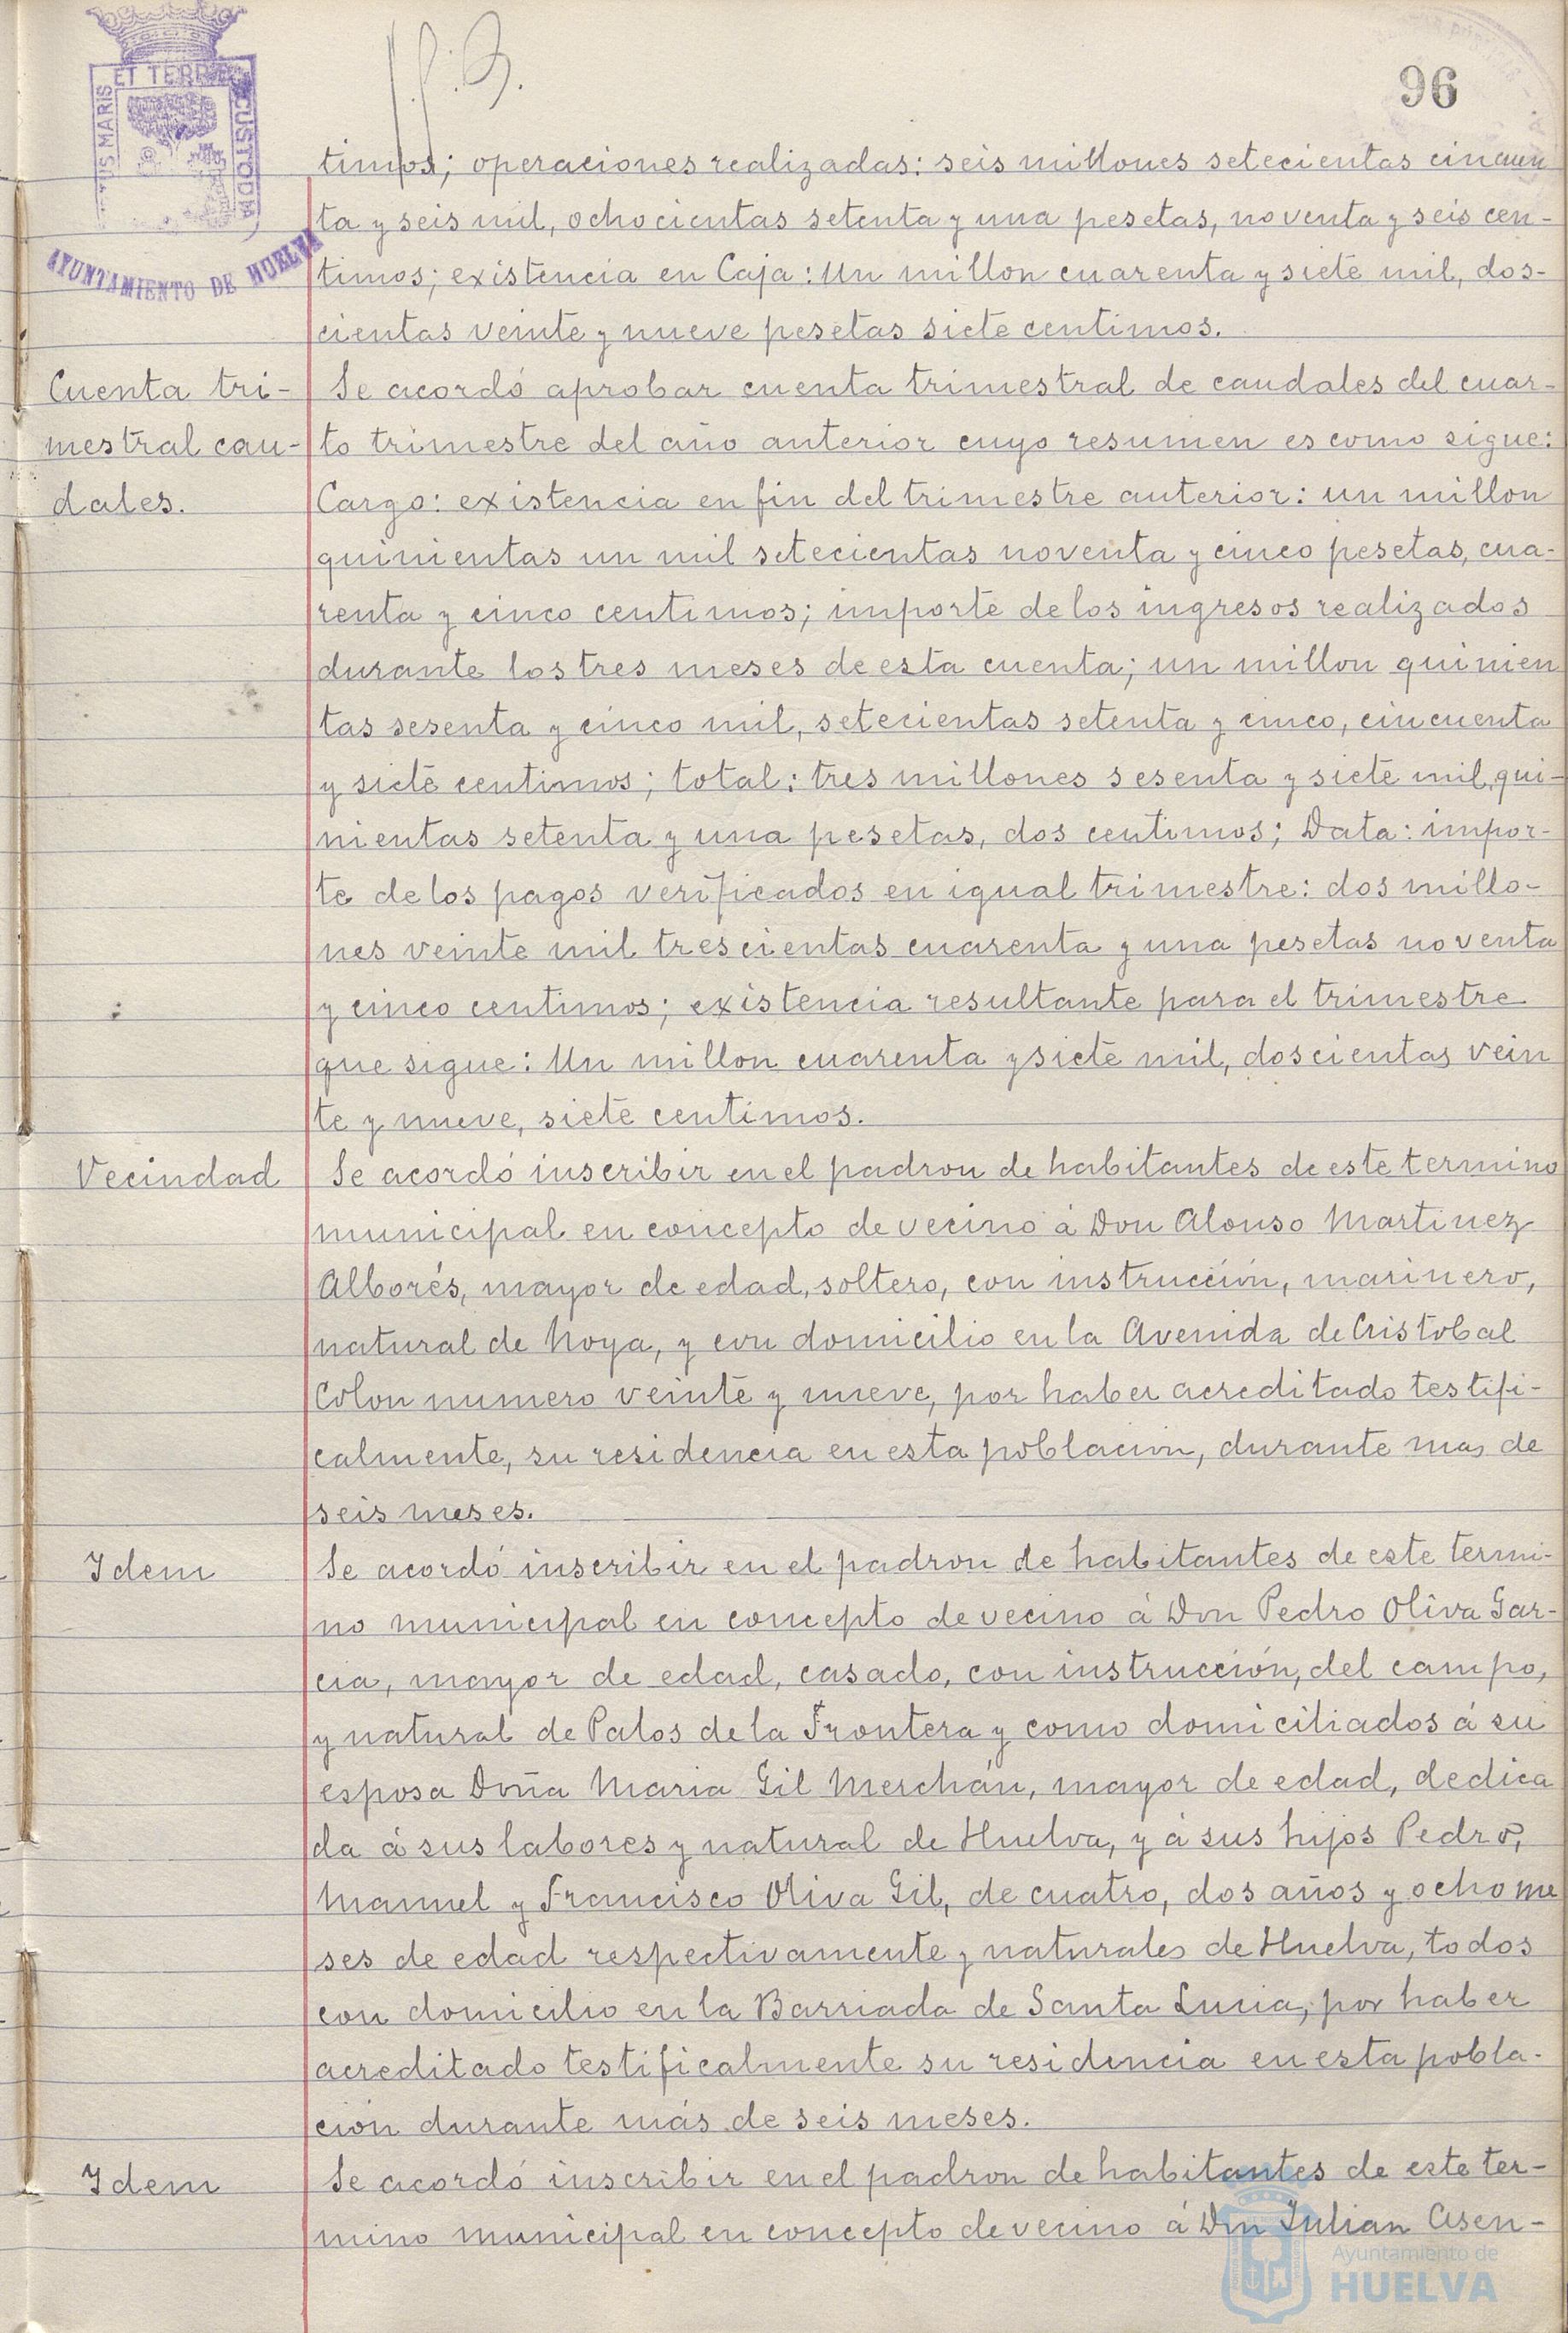 96
ET TERRE
TIS MARIS
CUSTODIA
AYUNTAMIENTO DE HUELVA
timos; operaciones realizadas: seis millones setecientas cincuen
ta y seis mil, ochocientas setenta y una pesetas, noventa y seis cen-
timos; existencia en Caja: Un millon cuarenta y siete mil, dos-
cientas veinte y nueve pesetas siete centimos.
Cuenta tri-
mestral cau-
dales.
Se acordó aprobar cuenta trimestral de caudales del cuar-
to trimestre del año anterior cuyo resumen es como sigue:
Cargo: existencia en fin del trimestre anterior: un millon
quinientas un mil setecientas noventa y cinco pesetas, cua-
renta y cinco centimos; importe de los ingresos realizados
durante los tres meses de esta cuenta; un millon quinien
tas sesenta y cinco mil, setecientas setenta y cinco, cincuenta
y siete centimos; total: tres millones sesenta y siete mil, qui-
nientas setenta y una pesetas, dos centimos; Data: impor-
te de los pagos verificados en igual trimestre: dos millo-
nes veinte mil trescientas cuarenta y una pesetas noventa
y cinco centimos; existencia resultante para el trimestre
que sigue: Un millon cuarenta y siete mil, doscientas vein
te y nueve, siete centimos.
Vecindad
Se acordó inscribir en el padron de habitantes de este termino
municipal en concepto de vecino á Don Alonso Martinez
Alborés, mayor de edad, soltero, con instrucción, marinero,
natural de Noya, y con domicilio en la Avenida de Cristobal
Colon numero veinte y nueve, por haber acreditado testifi-
calmente, su residencia en esta poblacion, durante mas de
seis meses.
Idem
Se acordó inscribir en el padron de habitantes de este termi-
no municipal en concepto de vecino á Don Pedro Oliva Gar-
cia, mayor de edad, casado, con instrucción, del campo,
y natural de Palos de la Frontera y como domiciliados á su
esposa Doña Maria Gil Merchán, mayor de edad, dedica
da á sus labores y natural de Huelva, y á sus hijos Pedro,
Manuel y Francisco Oliva Gil, de cuatro, dos años y ocho me
ses de edad respectivamente y naturales de Huelva, todos
con domicilio en la Barriada de Santa Lucia, por haber
acreditado testificalmente su residencia en esta pobla-
ción durante más de seis meses.
Idem
Se acordó inscribir en el padron de habitantes de este ter-
mino municipal en concepto de vecino á Don Julian Asen-
Ayuntamiento de
HUELVA